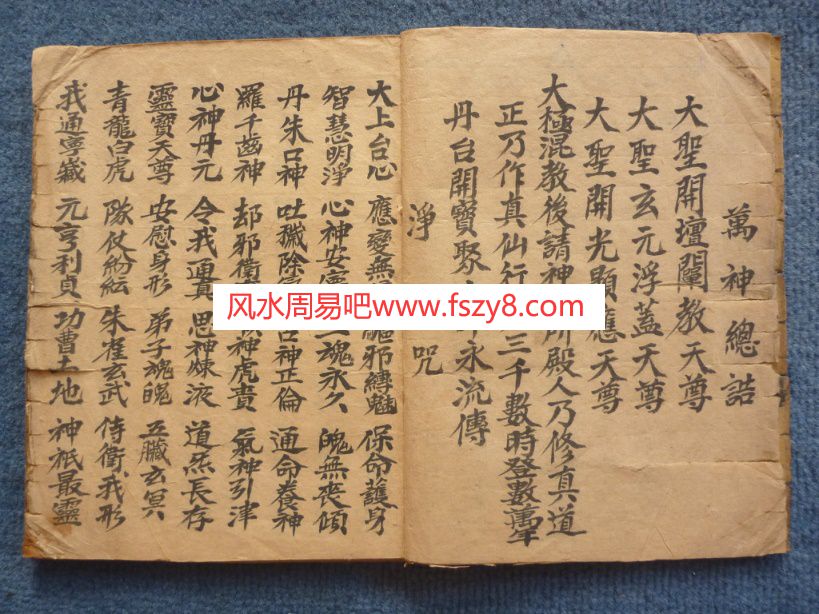 萬神總誥
大聖開壇闡教天尊
大聖玄元浮蓋天尊
大聖開光顯應天尊
大極混教後請神 殿人乃修真道
正乃作真仙行 三千數時登數萬年
丹台開寶聚 永流傳
淨咒
大上台心 應變無 邪縛魅 保命護身
智慧明淨 心神安寧 魂永久 魄無丧傾
丹朱口神 吐穢除 舌神正倫 通命養神
羅千齒神 却邪衛 神虎賁 氣神引津
心神丹元 令我通真 思神煉液 道炁長存
靈寶天尊 安慰身形 弟子魂魄 五臟玄冥
青龍白虎 隊仗紛紜 朱雀玄武 侍衛我形
我通寧藏 元亨利貞 功曹土地 神祇最靈
风水周易吧www.fszy8.com